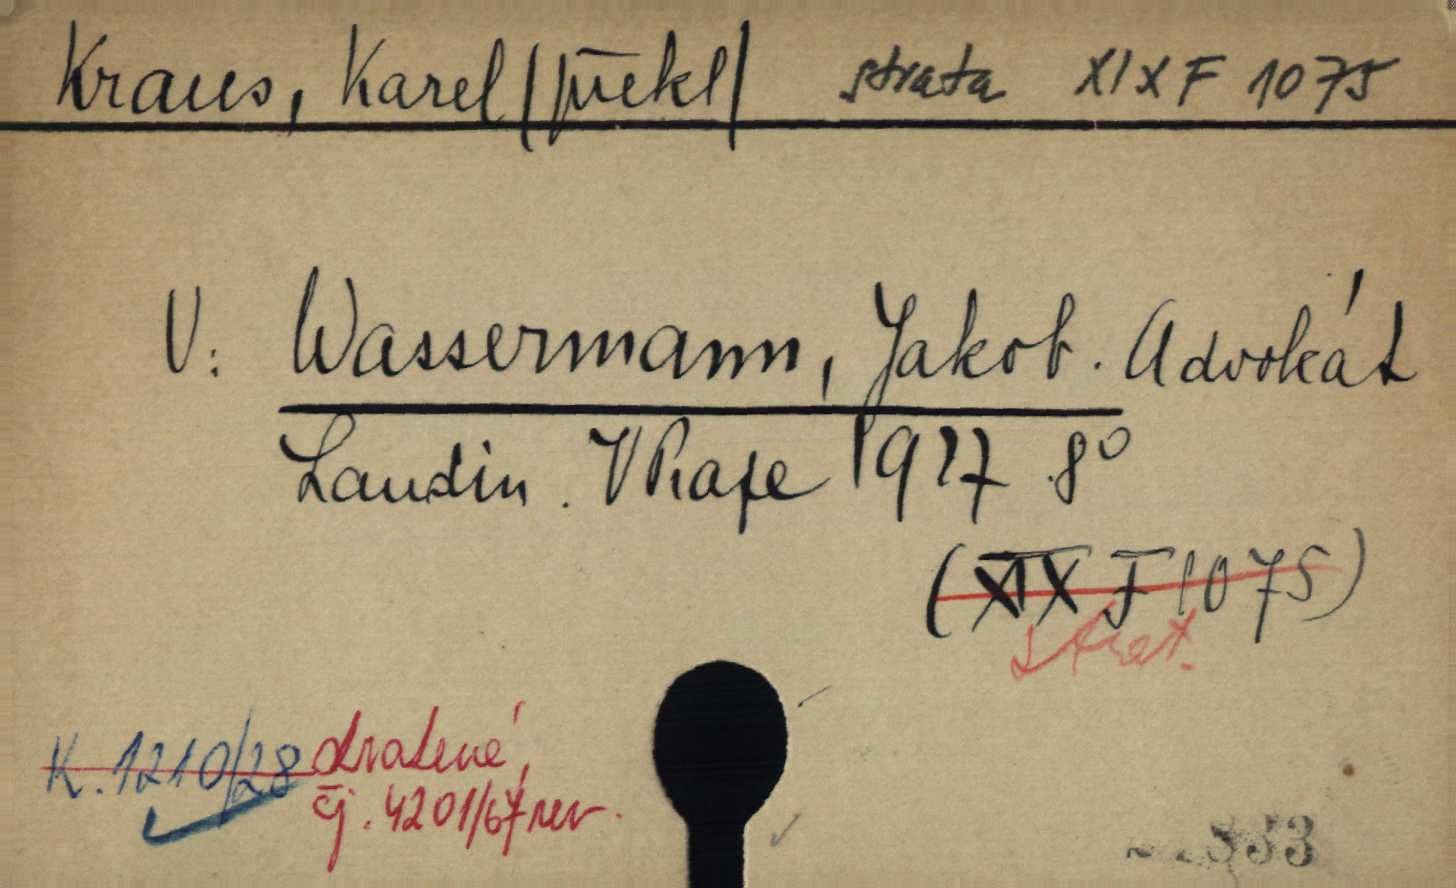 Kraus, Karel /překl/ strata XIX F 1075
V: Wassermann, Jakob. Advokát
Laudin. V Praze 1927 8°
(XIX F 1075)
strat.
K. 1210/28 ztratené,
čj. 4201/67 rev.
853